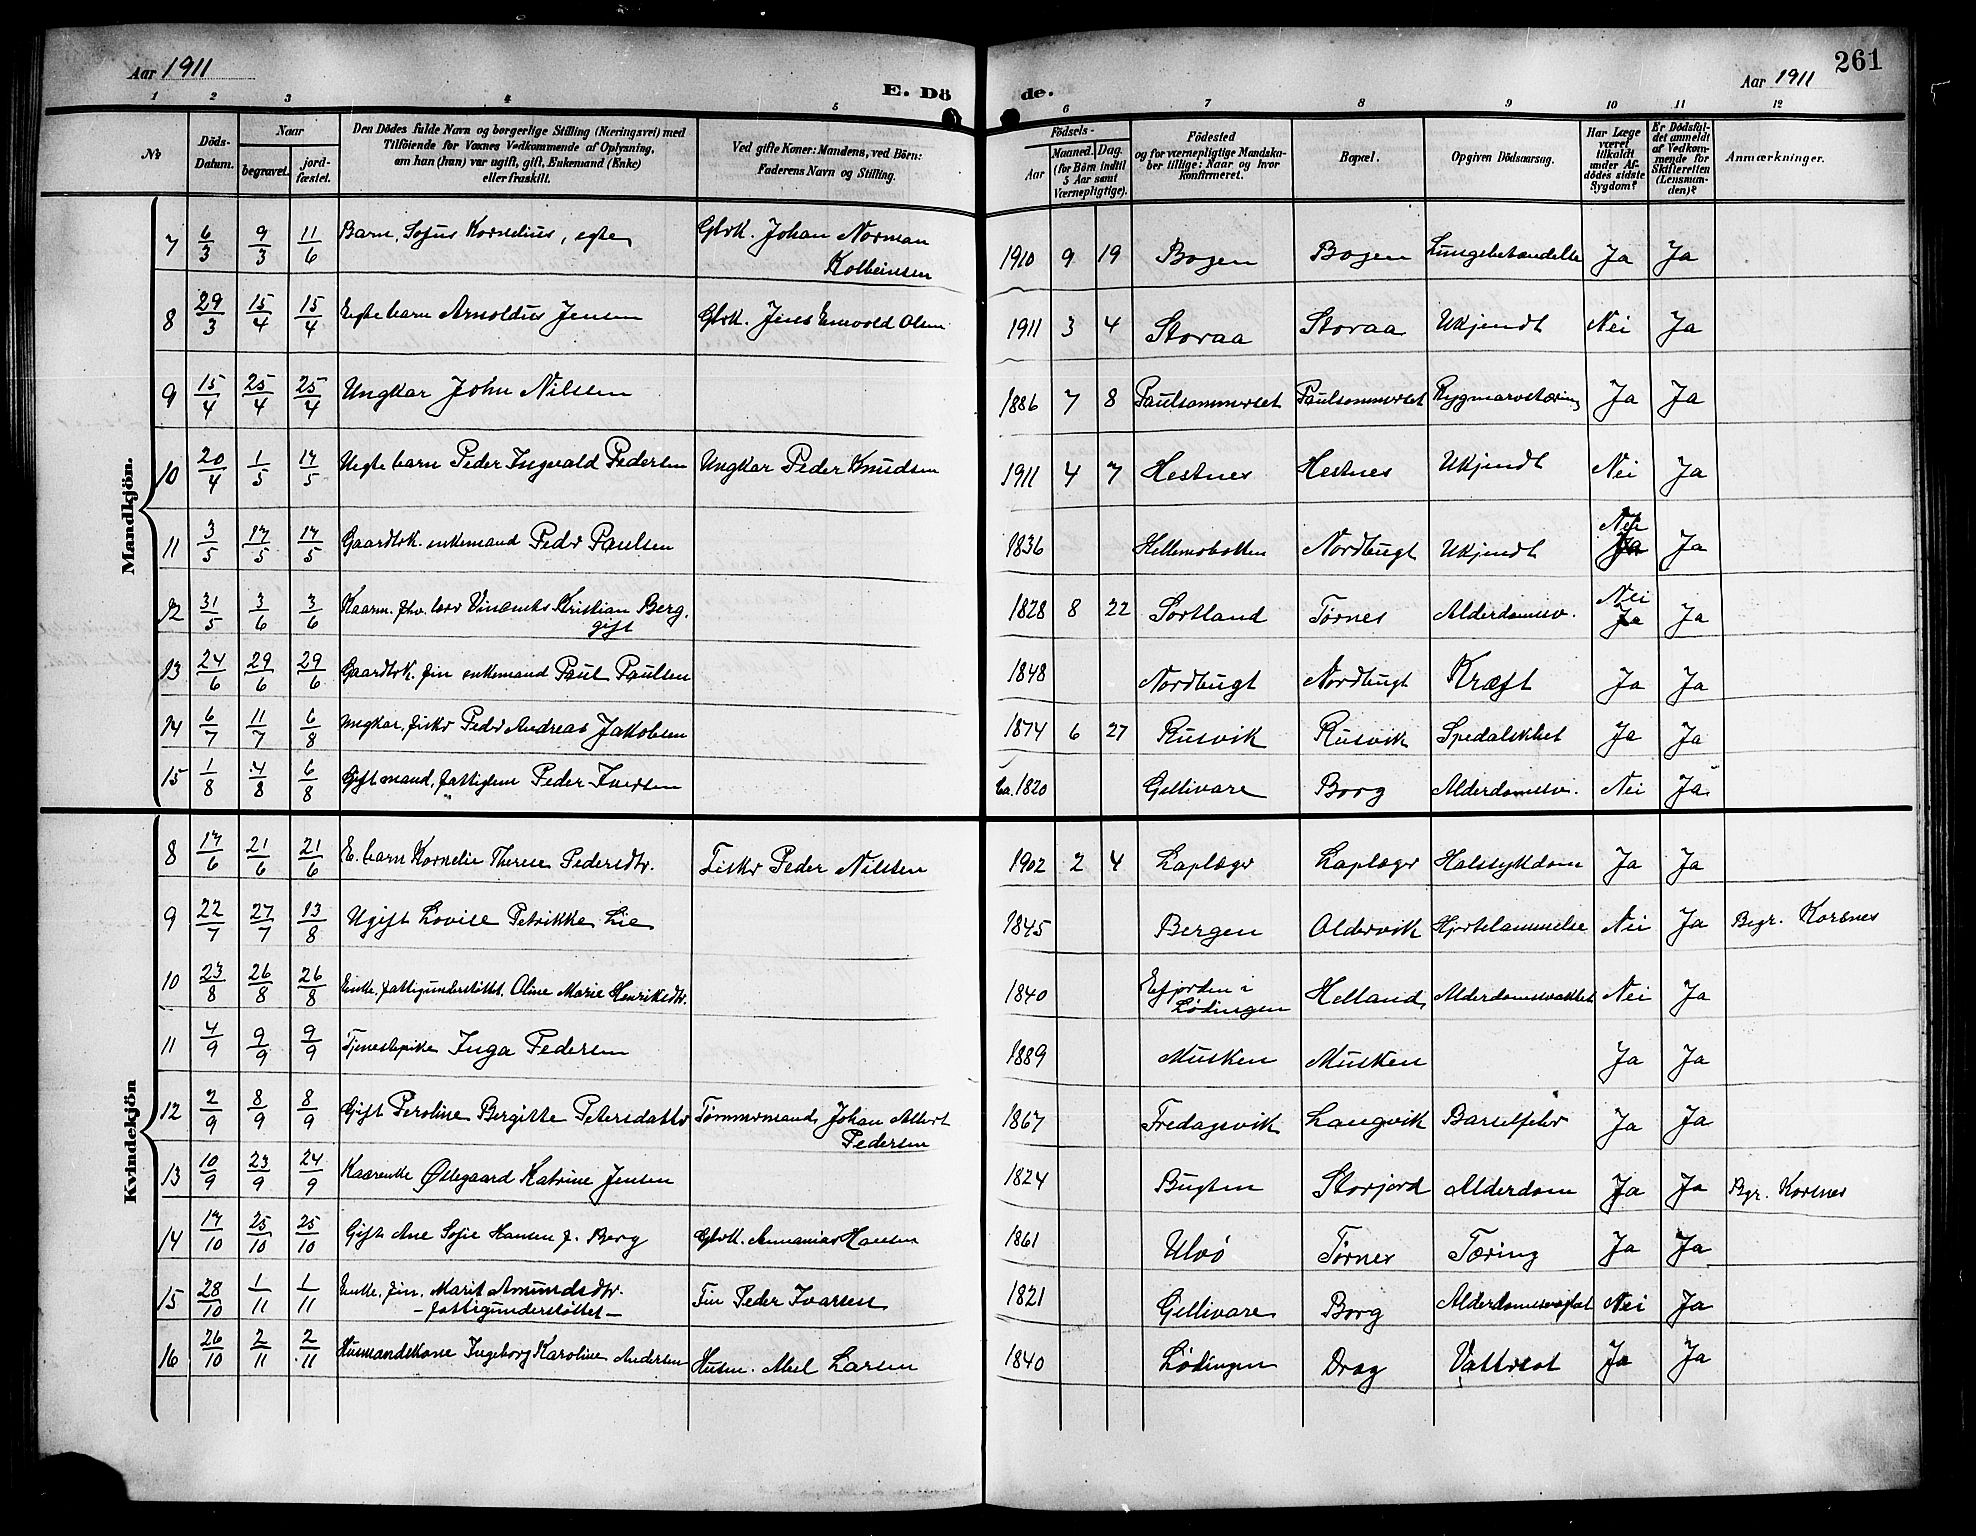 Aar 1911
E. Dö
de.
Aar 1911
261
1 2 3 4 5 6 7 8 9 10 11 12
Nr
Döds-Datum.
Naar
begravet.
jord-fæstet.
Den Dödes fulde Navn og borgerlige Stilling (Næringsvei) med
Tilföiende for Voxnes Vedkommende af Oplysning,
om han (hun) var ugift, gift, Enkemand (Enke)
eller fraskilt.
Ved gifte Koner: Mandens, ved Börn:
Faderens Navn og Stilling.
Födsels-
Aar
Maaned. Dag.
(for Börn indtil
5 Aar samt
Værnepligtige).
Födested
og for værnepligtige Mandska-
ber tillige: Naar og hvor
konfirmeret.
Bopæl.
Opgiven Dödsaarsag.
Har Læge
været
tilkaldt
under Af-
dödes sidste
Sygdom?
Er Dödsfal-
det anmeldt
af Vedkom-
mende for
Skifteretten
(Lensman-
den)?
Anmærkninger.
Mandkjön.
7 6/3 9/3 11/6 Barn, Sofus Kornelius, egte Gbrk. Johan Norman Kolbeinsen 1910 9 19 Bogen Bogen Lungebetændelse Ja Ja
8 29/3 15/4 15/4 Egte barn Arnoldus Jensen Gbrk. Jens Enevold Olsen 1911 3 4 Storaa Storaa Ukjendt Nei Ja
9 15/4 25/4 25/4 Ungkar John Nilsen 1886 7 8 Paulsommerset Paulsommerset Rygmarvstæring Ja Ja
10 20/4 1/5 17/5 Uegte barn Peder Ingvald Pedersen Ungkar Peder Knudsen 1911 4 7 Hestnes Hestnes Ukjendt Nei Ja
11 3/5 17/5 17/5 Gaardbrk. enkemand Peder Paulsen 1836 Hellemobotten Nordbugt Ukjendt Nei Ja Ja
12 31/5 3/6 3/6 Kaarm. fhv. lærer Vincents Kristian Berg, gift 1828 8 22 Sortland Tørnes Alderdomssv. Nei Ja Ja
13 24/6 29/6 29/6 Gaardbrk. fin enkemand Paul Paulsen 1848 Nordbugt Nordbugt Kræft Ja Ja
14 6/7 11/7 6/8 Ungkar, fisker Peder Andreas Jakobsen 1874 6 27 Rusvik Rusvik Spedalskhet Ja Ja
15 1/8 4/8 6/8 Gift mand, fattiglem Peder Iversen Ca. 1820 Gellivare Borg Alderdomssv. Nei Ja
Kvindekjön
8 17/6 21/6 21/6 E. barn Kornelie Therese Pedersdtr. Fisker Peder Nilsen 1902 2 4 Laplæger Laplæger Halssykdom Ja Ja
9 22/7 27/7 13/8 Ugift Lovise Petrikke Lie 1845 Bergen Oldervik Hjertelammelse Nei Ja Begr. Korsnes
10 23/8 26/8 26/8 Enke, fattigunderstøttet, Oline Marie Henriksdtr. 1840 Efjorden i Lødingen Helland Alderdomssvakhet Nei Ja
11 4/9 9/9 9/9 Tjenestepike Inga Pedersen 1889 Musken Musken Ja Ja
12 2/9 8/9 8/9 Gift Peroline Bergitte Petersdatter Tømmermand Johan Albert Pedersen 1867 Fredagsvik Langvik Barselfeber Ja Ja
13 10/9 23/9 24/9 Kaarenke Øllegaard Katrine Jensen 1824 Bugten Storjord Alderdom Ja Ja Bgr. Korsnes
14 17/10 25/10 25/10 Gift Ane Sofie Hansen f. Berg Gbrk. Annanias Hansen 1861 Ulvø Tørnes Tæring Ja Ja
15 28/10 1/11 1/11 Enke, fin. Marit Amundsdtr. - fattigunderstøttet - Fin Peder Ivarsen 1821 Gellivare Borg Alderdomssvakhet Nei Ja
16 26/10 2/11 2/11 Husmandskone Ingeborg Karoline Andersen Husm. Abel Larsen 1840 Lødingen Drag Vattersot Ja Ja